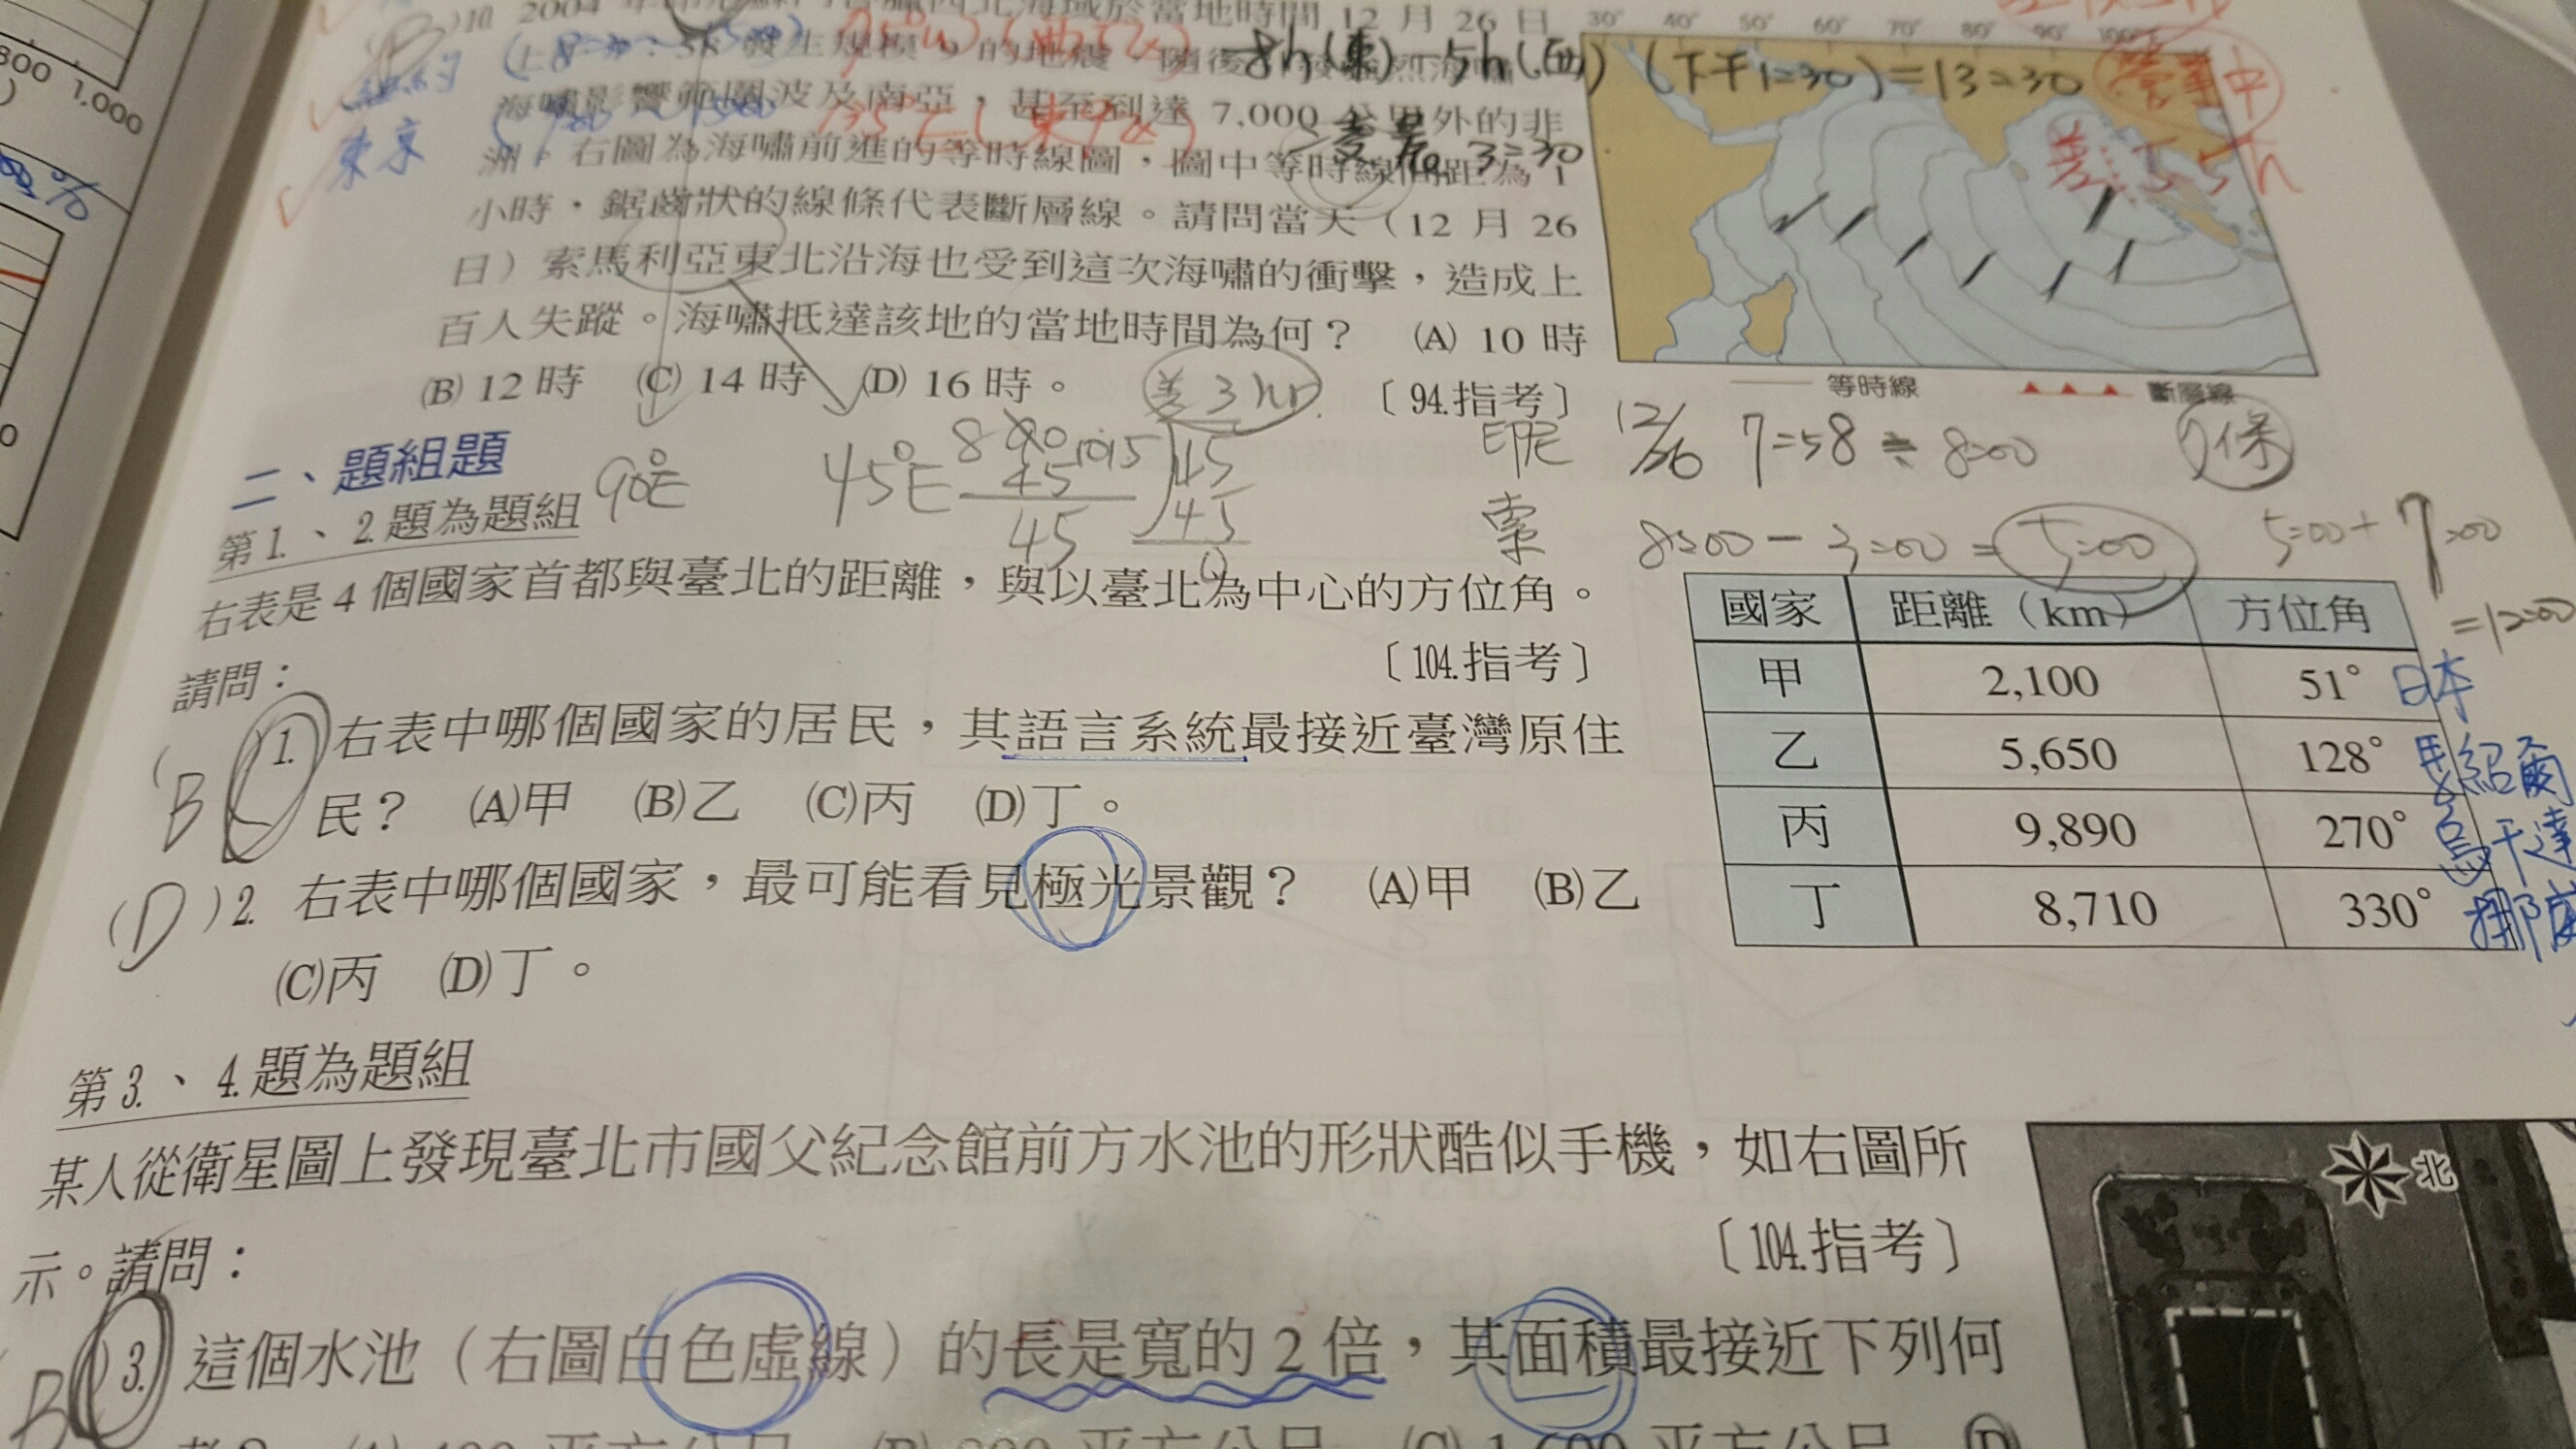 800 1,000
0
%
紐約
東京
)10. 2004
北海域於當地時間 12 月 26 日
發生規模 9 的地震，隨後
海嘯影響範圍波及南亞，甚至到達 7,000 公里外的非
洲。右圖為海嘯前進的等時線圖，圖中等時線間距為 1
小時，鋸齒狀的線條代表斷層線。請問當天（12 月 26
日）索馬利亞東北沿海也受到這次海嘯的衝擊，造成上
百人失蹤。海嘯抵達該地的當地時間為何？ (A) 10 時
(B) 12 時 (C) 14 時 (D) 16 時。
〔94.指考〕
8h(東) 5h(西) (下午1:30)=13:30
差 3:30
30° 40° 50° 60° 70° 80° 90° 100°
等時線 斷層線
差3hr
印尼 12/26 7:58 ≒ 8:00
索 8:00 - 3:00 = 5:00
5:00 + 7:00
=12:00
90°E 45°E
45
45
二、題組題
第1.、2.題為題組
右表是 4 個國家首都與臺北的距離，與以臺北為中心的方位角。
請問：
〔104.指考〕
B 1. 右表中哪個國家的居民，其語言系統最接近臺灣原住
民？ (A)甲 (B)乙 (C)丙 (D)丁。
(D)2. 右表中哪個國家，最可能看見極光景觀？ (A)甲 (B)乙
(C)丙 (D)丁。
國家 距離（km） 方位角
甲 2,100 51° 日本
乙 5,650 128° 馬紹爾
丙 9,890 270° 烏干達
丁 8,710 330° 挪威
第3.、4.題為題組
某人從衛星圖上發現臺北市國父紀念館前方水池的形狀酷似手機，如右圖所
示。請問：
〔104.指考〕
北
B )3. 這個水池（右圖白色虛線）的長是寬的 2 倍，其面積最接近下列何